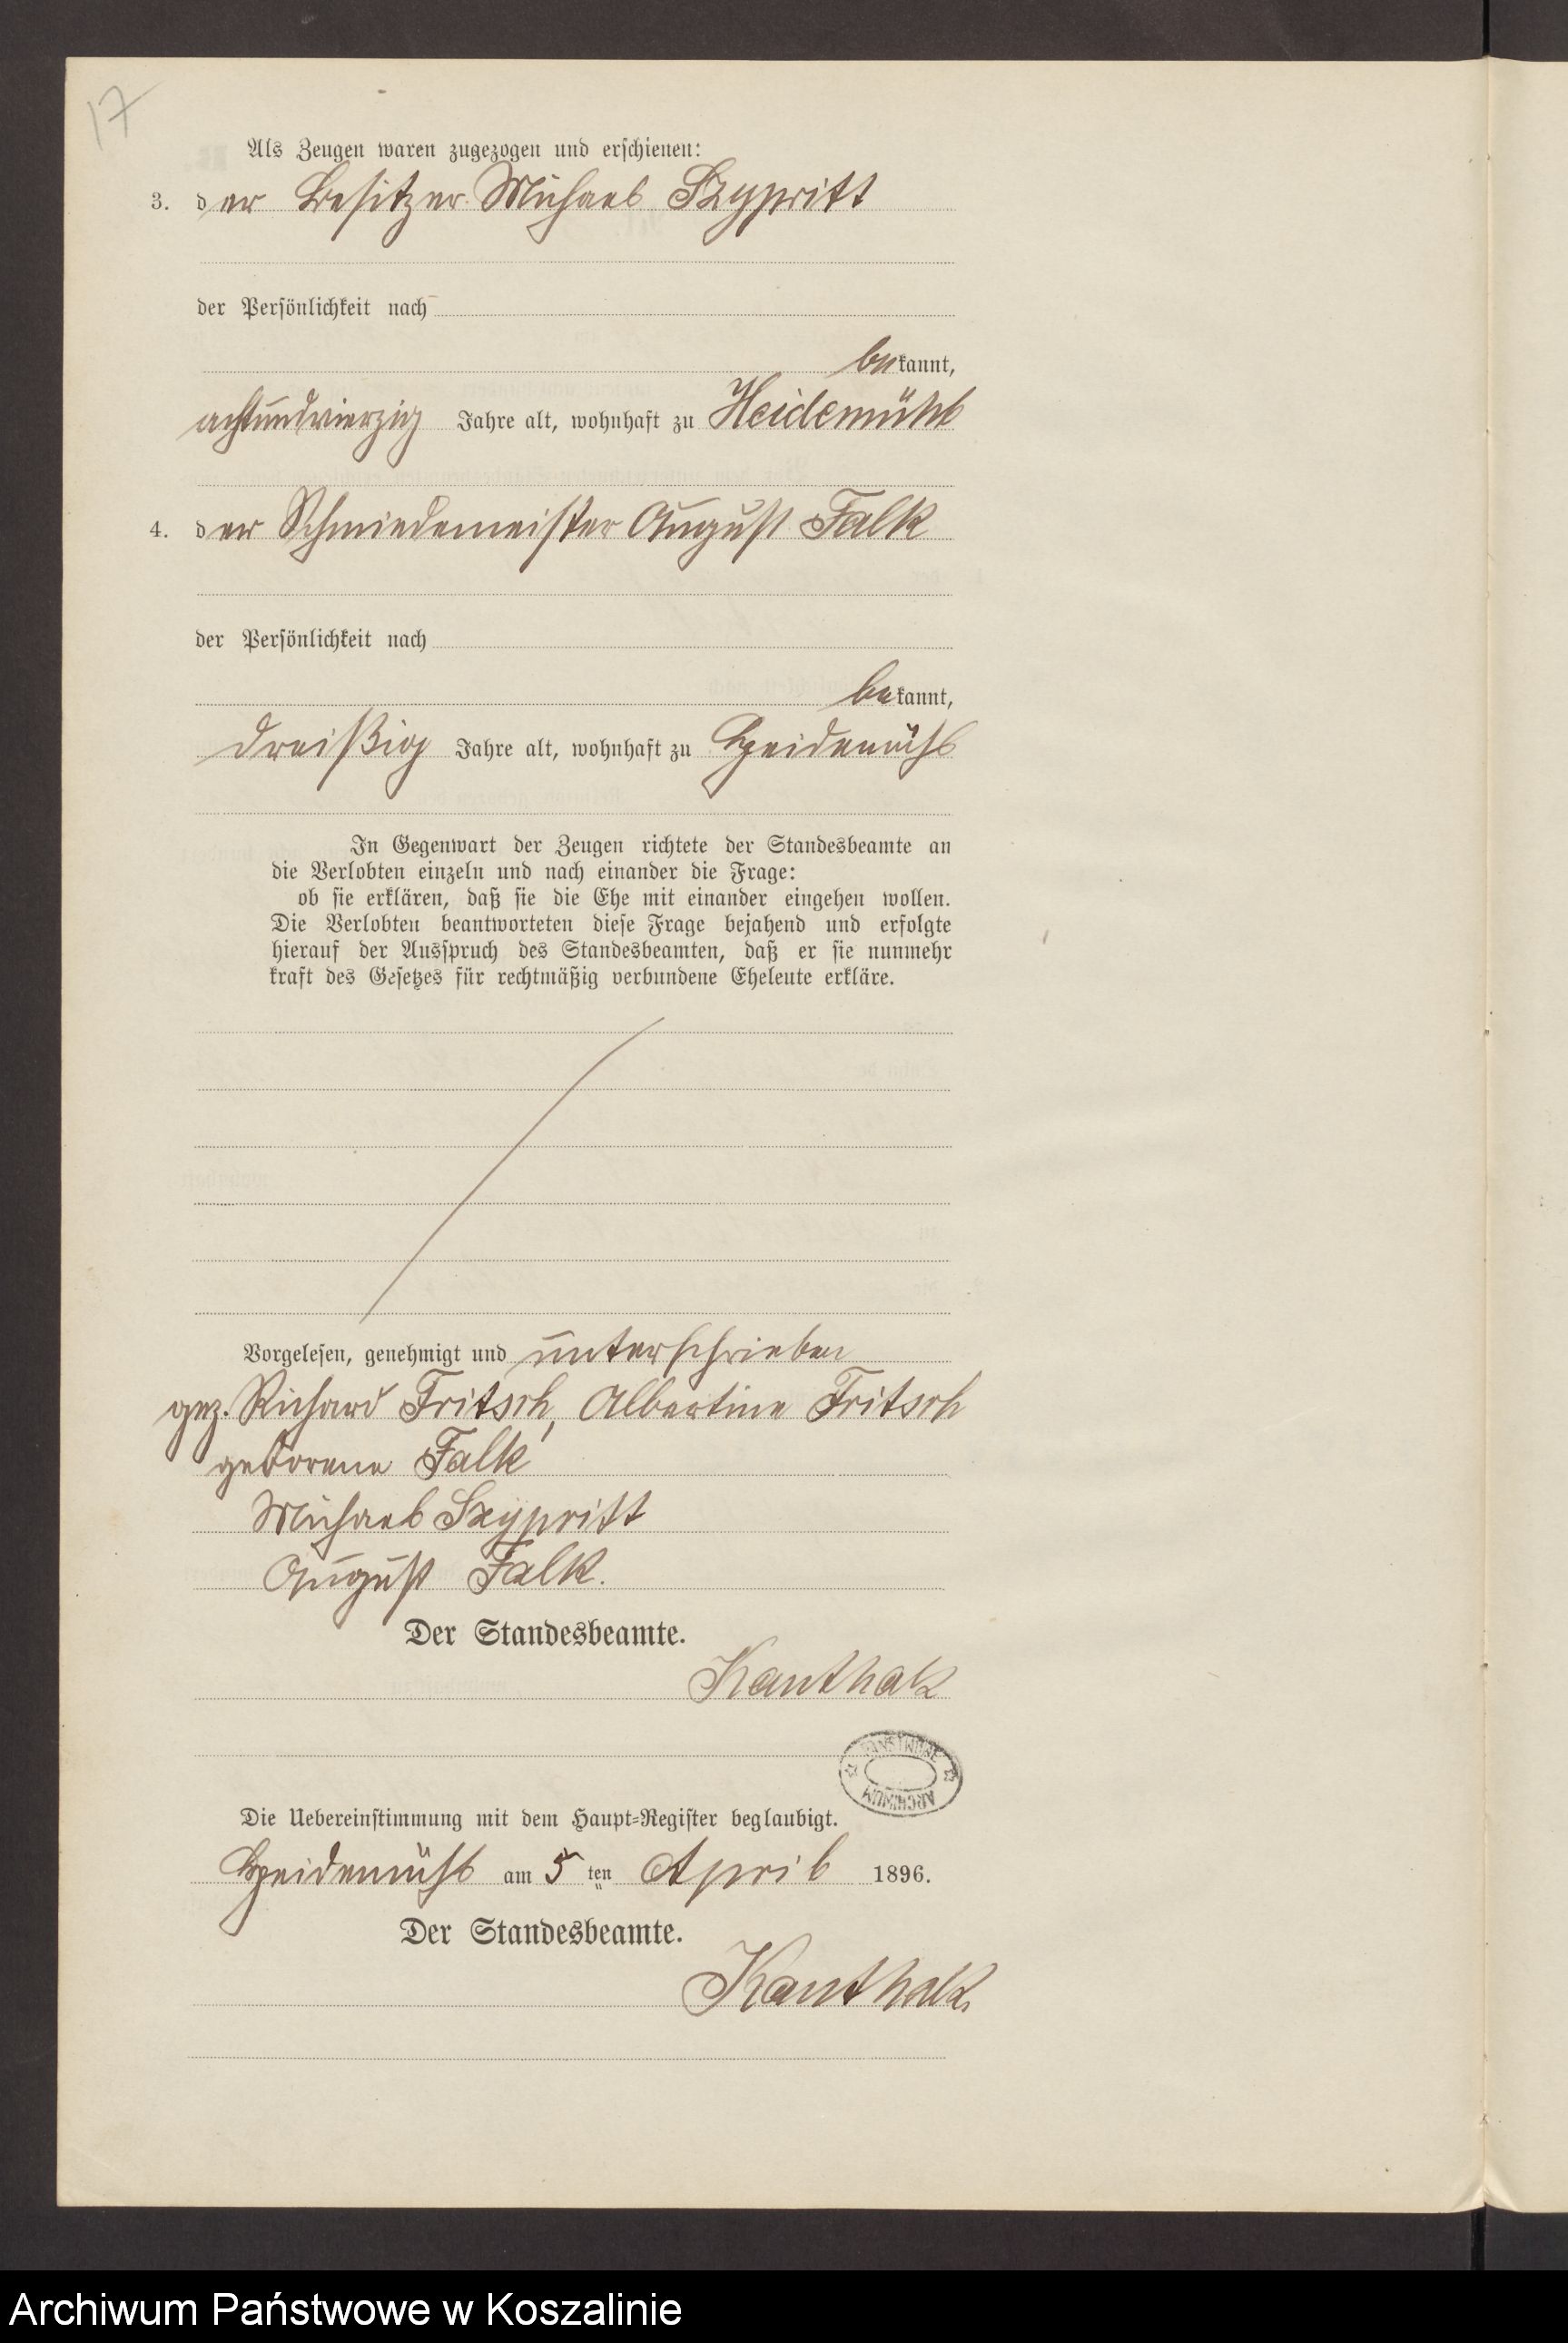 17
Als Zeugen waren zugezogen und erschienen:
3. der Besitzer Michael Szypritt
der Persönlichkeit nach
bekannt,
achtundvierzig Jahre alt, wohnhaft zu Heidemühl
4. der Schmiedemeister August Falk
der Persönlichkeit nach
bekannt,
dreißig Jahre alt, wohnhaft zu Heidemühl
In Gegenwart der Zeugen richtete der Standesbeamte an
die Verlobten einzeln und nach einander die Frage:
ob sie erklären, daß sie die Ehe mit einander eingehen wollen.
Die Verlobten beantworteten diese Frage bejahend und erfolgte
hierauf der Ausspruch des Standesbeamten, daß er sie nunmehr
kraft des Gesetzes für rechtmäßig verbundene Eheleute erkläre.
Vorgelesen, genehmigt und unterschrieben
gez. Richard Fritsch, Albertine Fritsch
geborene Falk
Michael Szypritt
August Falk.
Der Standesbeamte.
Kanthak
PAŃSTWOWE ARCHIWUM
Die Uebereinstimmung mit dem Haupt-Register beglaubigt.
Heidemühl am 5 ten April 1896.
Der Standesbeamte.
Kanthak.
Archiwum Państwowe w Koszalinie